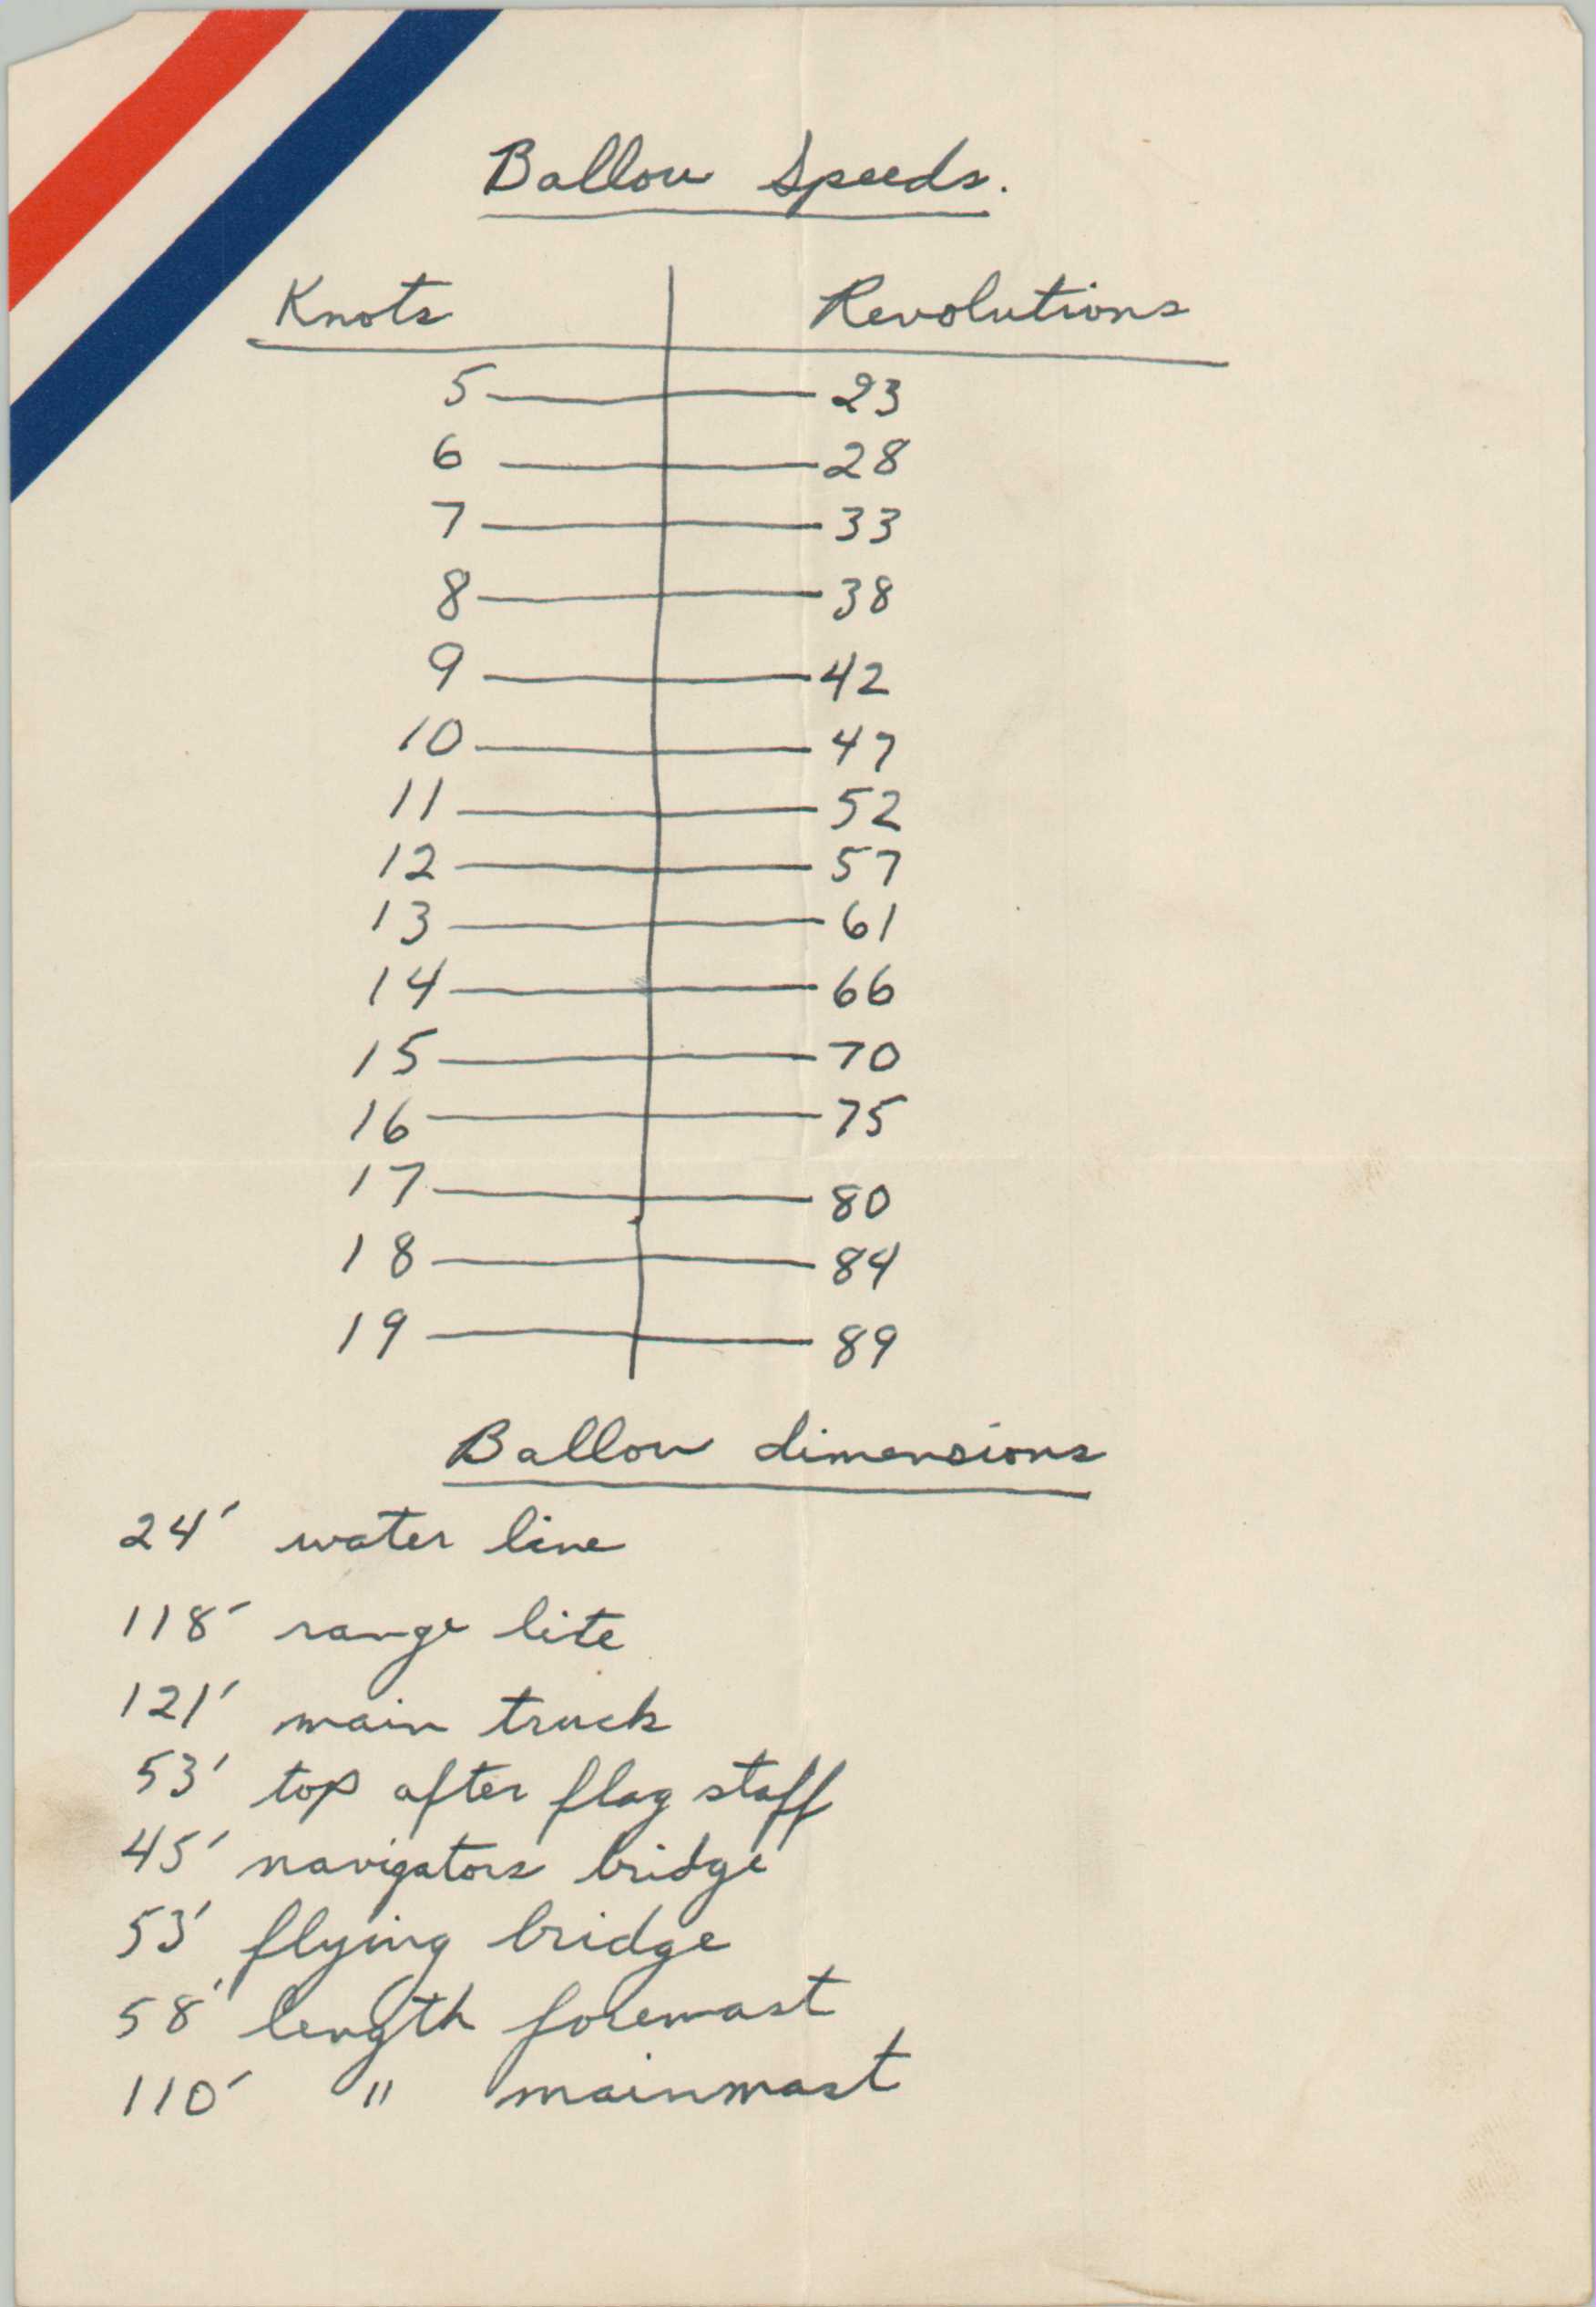 Ballou Speeds.
Knots Revolutions
5 — 23
6 — 28
7 — 33
8 — 38
9 — 42
10 — 47
11 — 52
12 — 57
13 — 61
14 — 66
15 — 70
16 — 75
17 — 80
18 — 84
19 — 89
Ballou dimensions
24' water line
118' range lite
121' main truck
53' top after flag staff
45' navigators bridge
53' flying bridge
58' length foremast
110' " mainmast